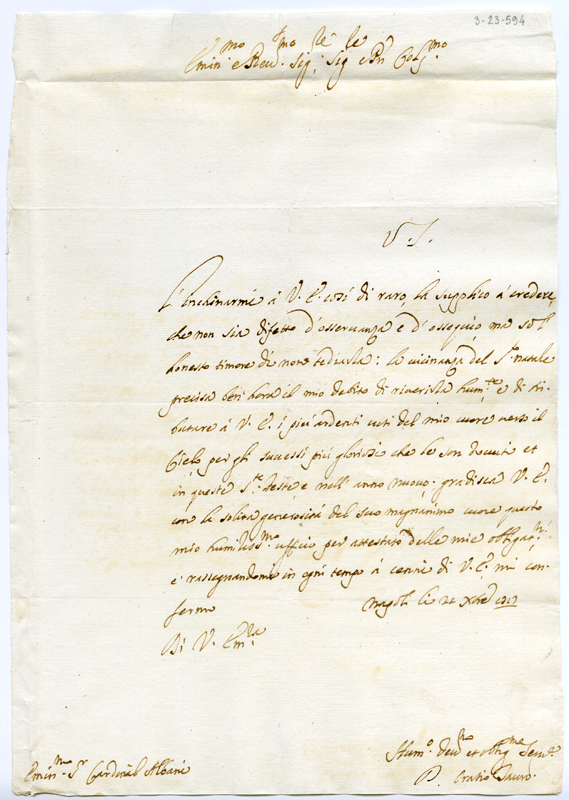 3-23-594
Emin.mo e Reu.mo Sig.re Sig.re e Pn Col.mo
V. S.
L'Inchinarmi à V. E. così di raro, la supplico à credere,
che non sia difetto d'osseruanza e d'ossequio, ma sol
honesto timore di non tediarla: la uicinanza del S. natale
precisa però hora il mio debito di riuerirla hum.te e di tri-
butare à V. E. i più ardenti uoti del mio cuore uerso il
Cielo per gli successi più gloriosi che le son douuti et
in queste S.te feste e nell' anno nuouo. gradisca V. E.
con la solita generosità del suo magnanimo cuore questo
mio humiliss.mo uffizio per attestato delle mie obligat.ni
e rassegnandomi in ogni tempo à cenni di V. E. mi con-
fermo
Napoli li 21 Xbre 1717
Di V. Em.za
Humo. deu.mo et oblig.mo Seru.e
D. Oratio Tauro.
Emin.mo S.r Cardinal Albani